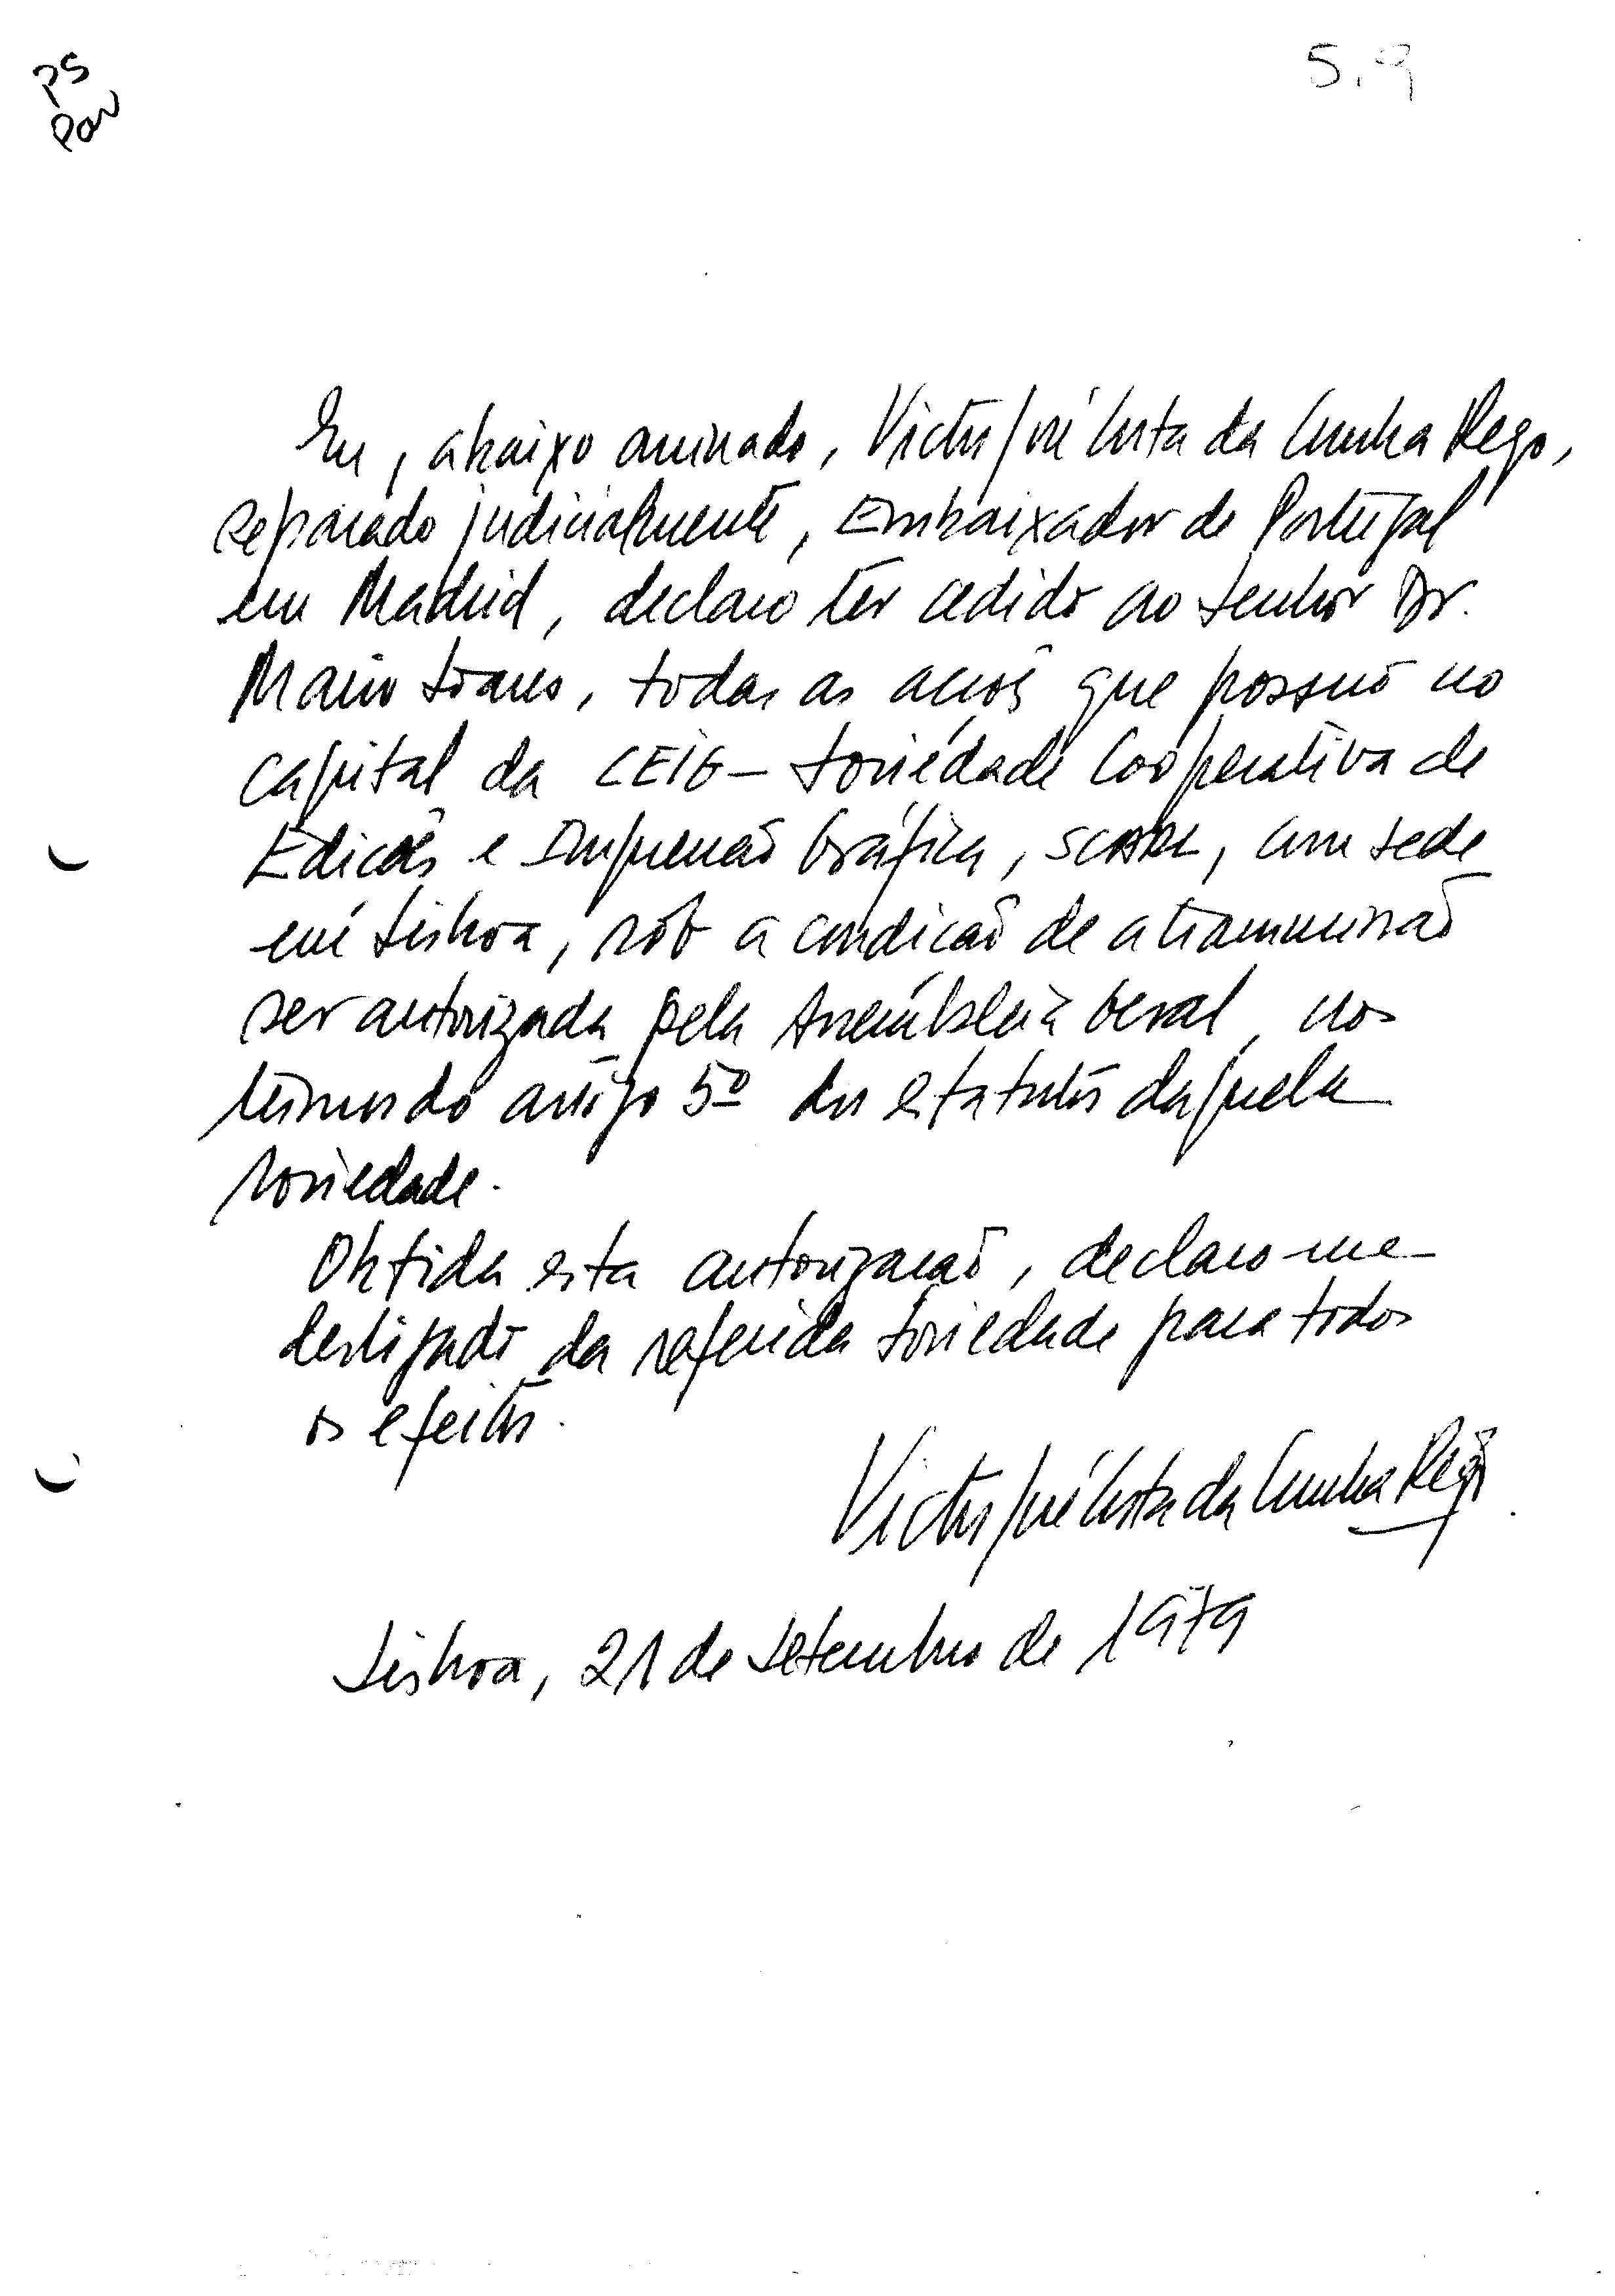 PS
Par
5.9
Eu, abaixo assinado, Victor José Costa da Cunha Rego,
separado judicialmente, Embaixador de Portugal
em Madrid, declaro ter cedido ao Senhor Dr.
Mário Soares, todas as acções que possuo no
capital da CEIG - Sociedade Cooperativa de
Edições e Impressão Gráfica, SCARL, com sede
em Lisboa, sob a condição de a transmissão
ser autorizada pela Assembleia Geral, nos
termos do artigo 5º dos estatutos daquela
sociedade.
Obtida esta autorização, declaro-me
desligado da referida Sociedade para todos
os efeitos.
Victor José Costa da Cunha Rego
Lisboa, 21 de Setembro de 1979